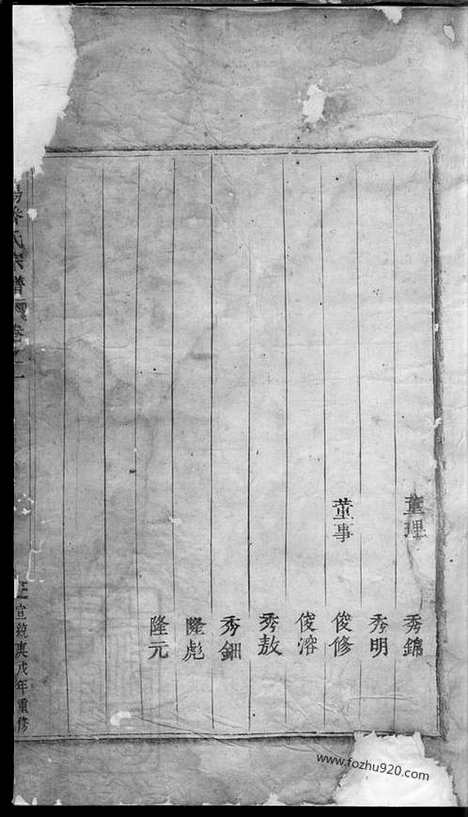 董理
秀錦
秀明
董事
俊修
俊溶
秀敖
秀鈿
隆彪
隆元
氏宗譜 卷之一
宣統庚戌年重修
www.fozhu920.com